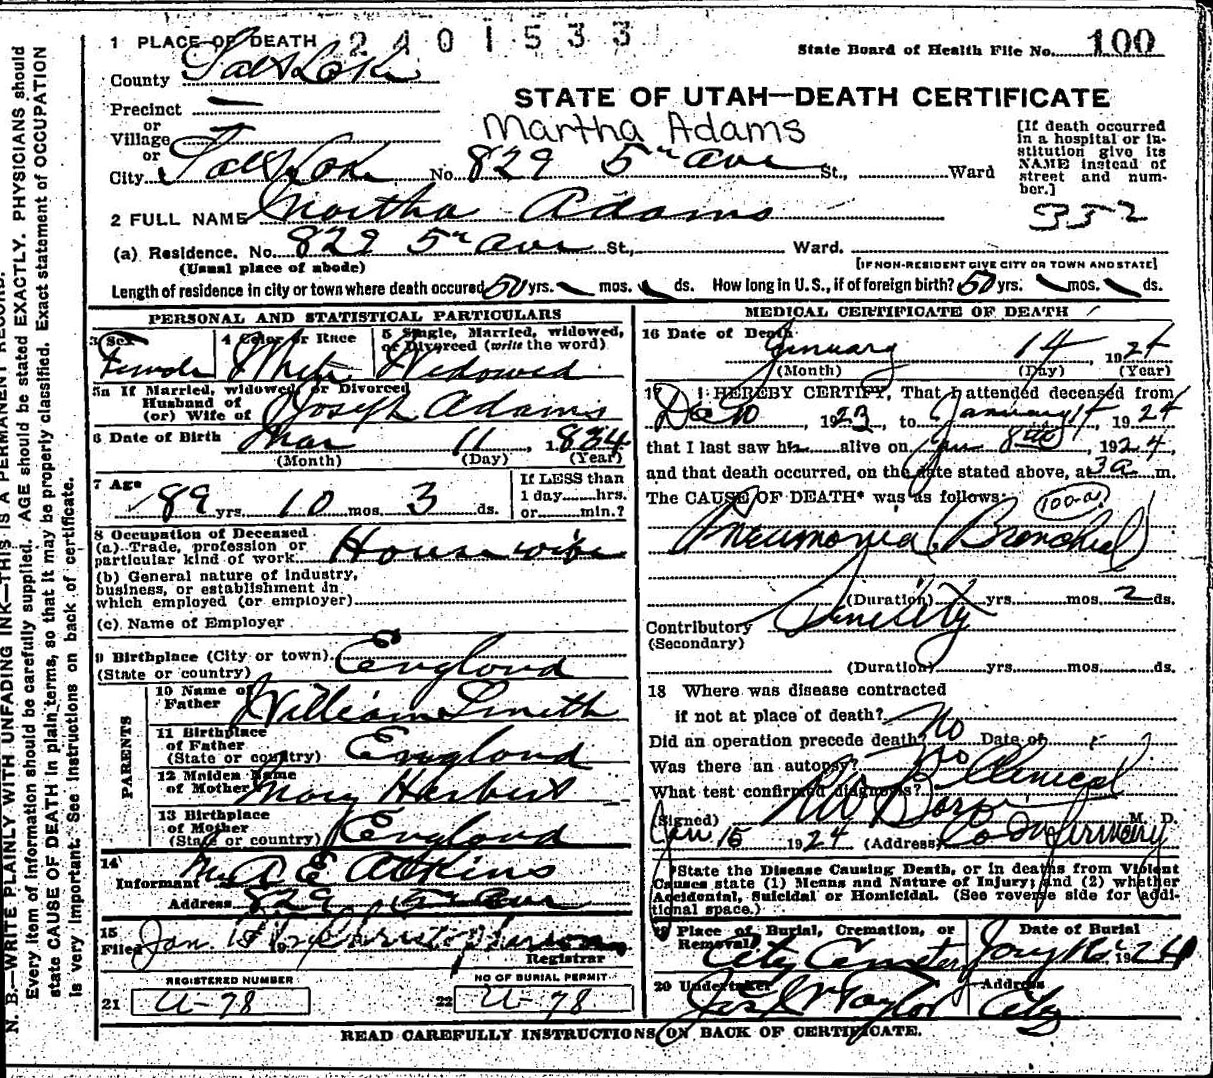 N. B.—WRITE PLAINLY WITH UNFADING INK—THIS IS A PERMANENT RECORD.
Every item of information should be carefully supplied. AGE should be stated EXACTLY. PHYSICIANS should
state CAUSE OF DEATH in plain terms, so that it may be properly classified. Exact statement of OCCUPATION
is very important. See instructions on back of certificate.
1 PLACE OF DEATH 2401533 State Board of Health File No. 100
County Salt Lake
STATE OF UTAH—DEATH CERTIFICATE
Precinct —
or
Village
or
Martha Adams
City Salt Lake No. 829 5th Ave St., Ward
[If death occurred
in a hospital or in-
stitution give its
NAME instead of
street and num-
ber.]
2 FULL NAME Martha Adams
352
(a) Residence. No. 829 5th Ave St., Ward.
(Usual place of abode) [IF NON-RESIDENT GIVE CITY OR TOWN AND STATE]
Length of residence in city or town where death occured 50 yrs. mos. ds. How long in U. S., if of foreign birth? 50 yrs. mos. ds.
PERSONAL AND STATISTICAL PARTICULARS
3 Sex 4 Color or Race 5 Single, Married, widowed,
or Divorced (write the word)
Female White Widowed
5a If Married, widowed or Divorced
Husband of
(or) Wife of Joseph Adams
6 Date of Birth Mar 11 1834
(Month) (Day) (Year)
7 Age 89 yrs. 10 mos. 3 ds.
If LESS than
1 day hrs.
or min.?
8 Occupation of Deceased
(a) Trade, profession or
particular kind of work Housewife
(b) General nature of industry,
business, or establishment in
which employed (or employer)
(c) Name of Employer
9 Birthplace (City or town)
(State or country) England
PARENTS
10 Name of
Father William Smith
11 Birthplace
of Father
(State or country) England
12 Maiden Name
of Mother Mary Herbert
13 Birthplace
of Mother
(State or country) England
14
Informant A E Adkins
Address 829 5th Ave
15
Filed Jan. 15
Registrar
REGISTERED NUMBER NO OF BURIAL PERMIT
21 U-78 22 U-78
MEDICAL CERTIFICATE OF DEATH
16 Date of Death
January 14, 1924
(Month) (Day) (Year)
17 I HEREBY CERTIFY, That I attended deceased from
1923, to January 14, 1924
that I last saw her alive on Jan 8th, 1924,
and that death occurred, on the date stated above, at 3a m.
The CAUSE OF DEATH* was as follows: 100-a
Pneumonia (Bronchial)
(Duration) yrs. mos. 2 ds.
Contributory Senility
(Secondary)
(Duration) yrs. mos. ds.
18 Where was disease contracted
if not at place of death?
Did an operation precede death? No Date of
Was there an autopsy? No
What test confirmed diagnosis? Clinical
(Signed) M. D.
Jan 15 1924 (Address) Co Infirmary
*State the Disease Causing Death, or in deaths from Violent
Causes state (1) Means and Nature of Injury; and (2) whether
Accidental, Suicidal or Homicidal. (See reverse side for addi-
tional space.)
19 Place of Burial, Cremation, or
Removal Date of Burial
City Cemetery 1924
20 Undertaker Address
Taylor City
READ CAREFULLY INSTRUCTIONS ON BACK OF CERTIFICATE.